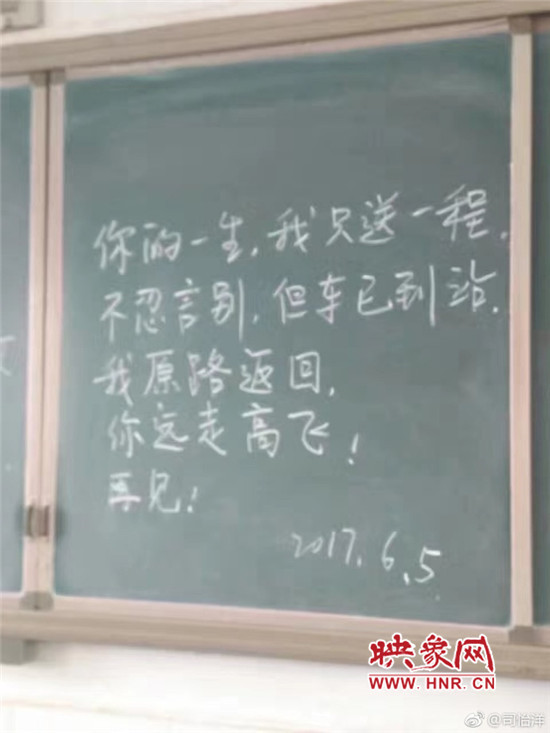 你的一生,我只送一程.
不忍言别,但车已到站.
我原路返回,
你远走高飞!
再见!
2017.6.5
映象网
WWW.HNR.CN
@司怡洋